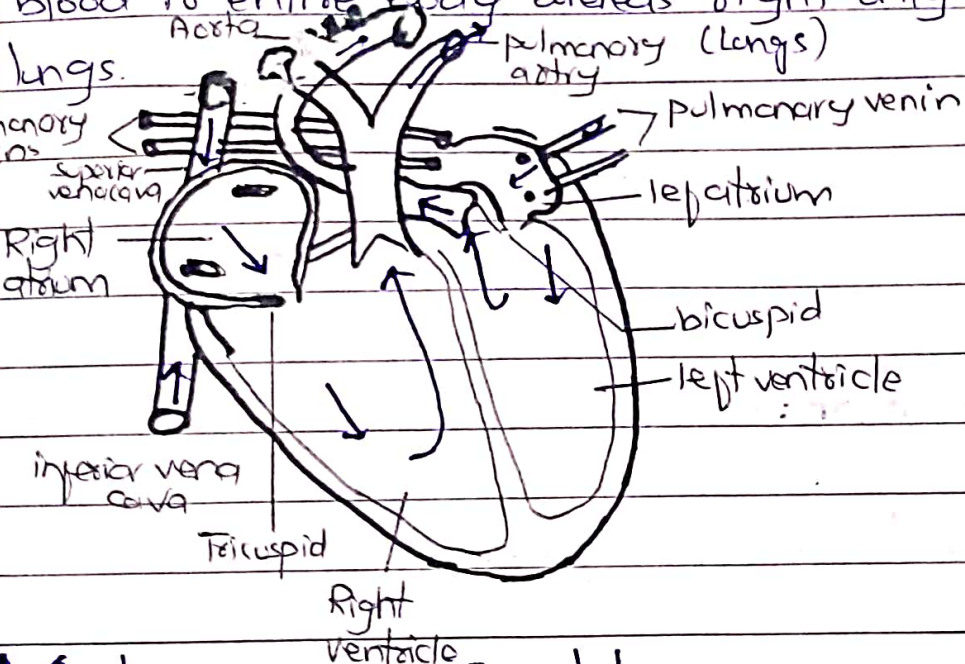 blood to entire body whereas right only
lungs.
Aorta
pulmonary (Lungs)
artry
pulmanary venin
superior
venacava
lefatrium
Right
atrium
bicuspid
left ventricle
inferior vena
cava
Tricuspid
Right
ventricle